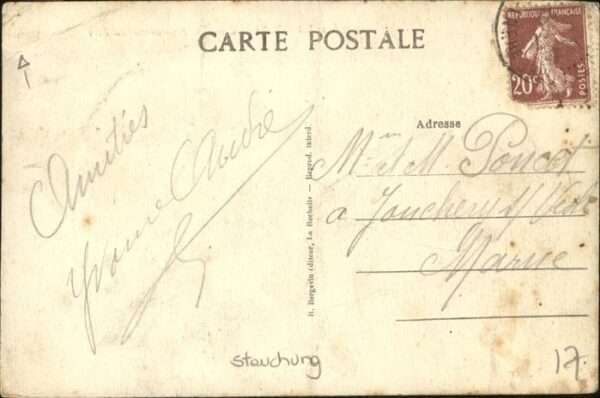 CARTE POSTALE
REPUBLIQUE FRANÇAISE
20c
POSTES
Amitiés
Yvonne André
Adresse
Mme et M. Poncet
à Jonchery s/ Vesle
Marne
R. Bergevin éditeur, La Rochelle — Reprod. interd.
stauchung
17.